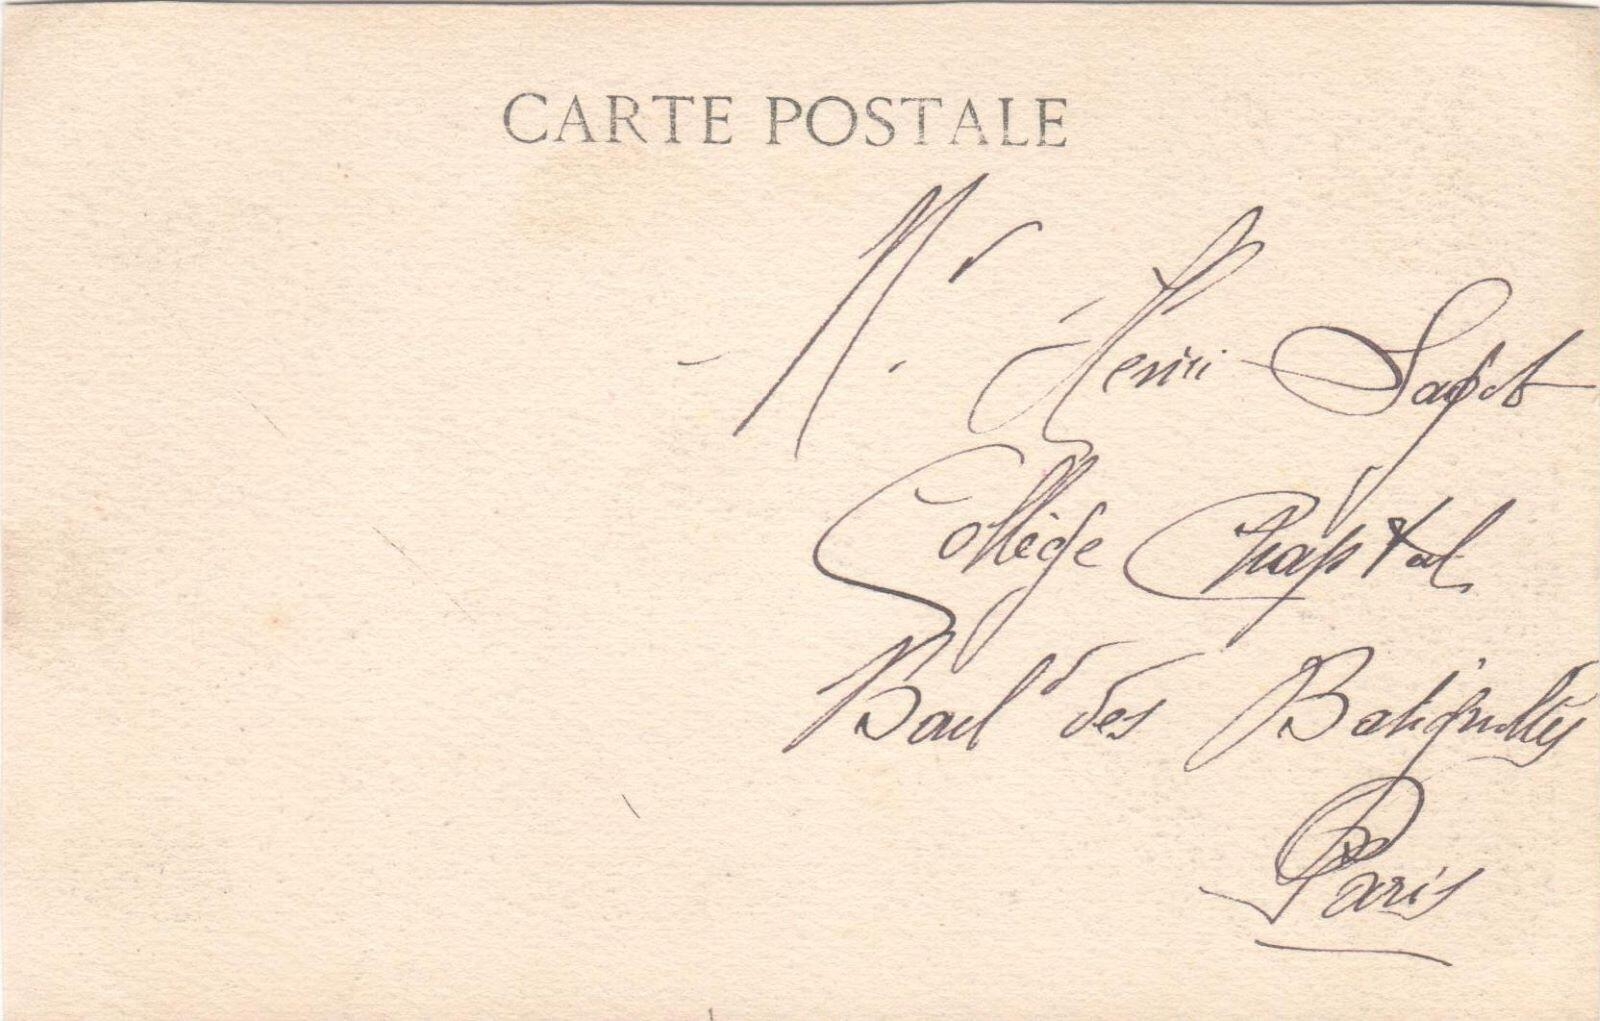 CARTE POSTALE
Mr. Henri
Collège Chaptal
Boul d des Batignolles
Paris